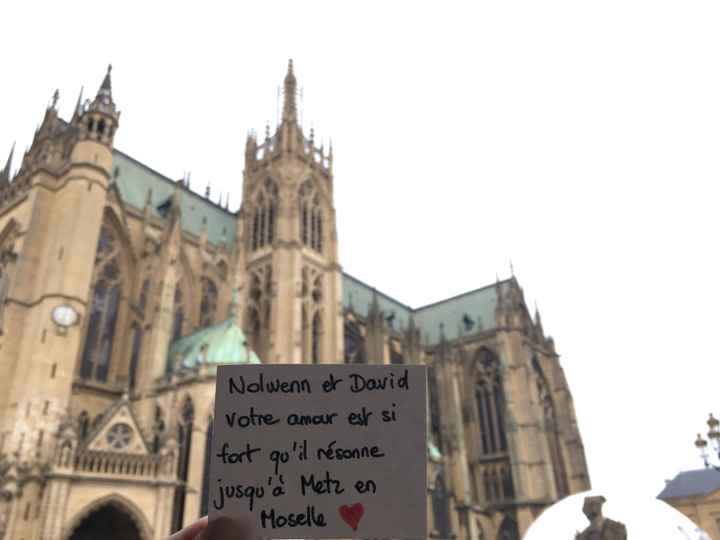 Nolwenn et David
votre amour est si
fort qu'il résonne
jusqu'à Metz en
Moselle ❤